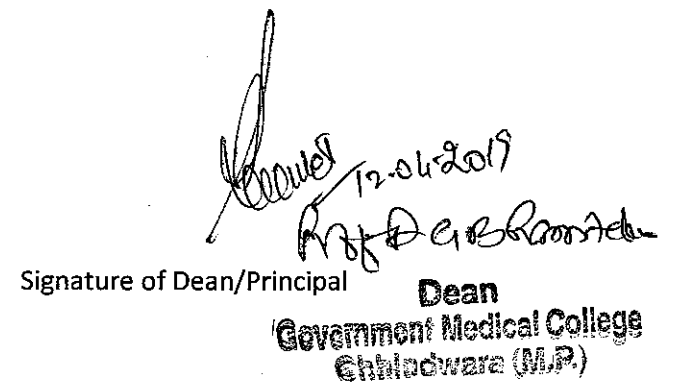 12-04-2019
Prof Dr G B Ramteke
Signature of Dean/Principal
Dean
Government Medical College
Chhindwara (M.P.)